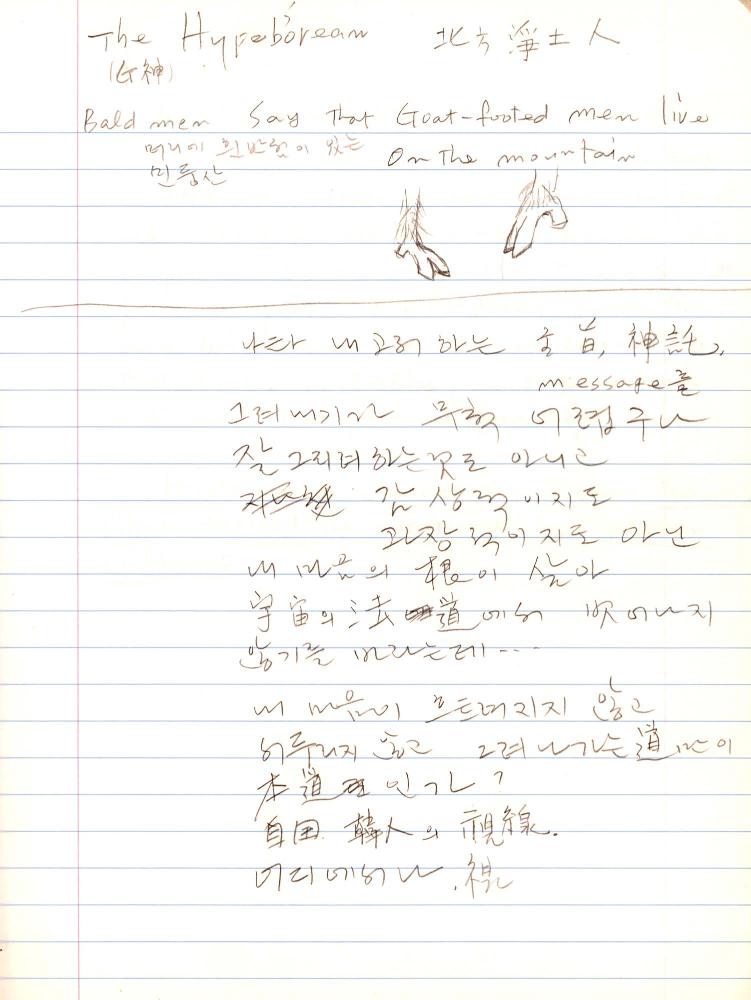 The Hypeborean 北方淨土人
(女神)
Bald men Say that Goat-footed men live
머리에 흰 반점이 있는
On the mountain
민둥산
나타내고저 하는 主旨, 神託,
message를
그려내기가 무척 어렵구나
잘 그리려 하는 것도 아니고
감상적이지도
과장적이지도 아닌
내 마음의 根이 살아
宇宙의 法道에서 벗어나지
않기를 바라는데....
내 마음이 흐트러지지 않고
서두르지 않고 그려 나가는 道만이
本道인가?
自国 韓人의 視線.
어디에서나